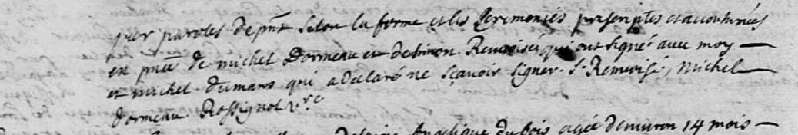 par paroles de pnt selon la forme et les Ceremonies prescriptes et accoutumées
en pnce de michel Dormeau et de Remoisé qui ont signé avec moy
et michel dumans qui a declaré ne sçavoir signer. Michel
Dormeau Rossignol
Angelique dubois agée d'environ 14 mois